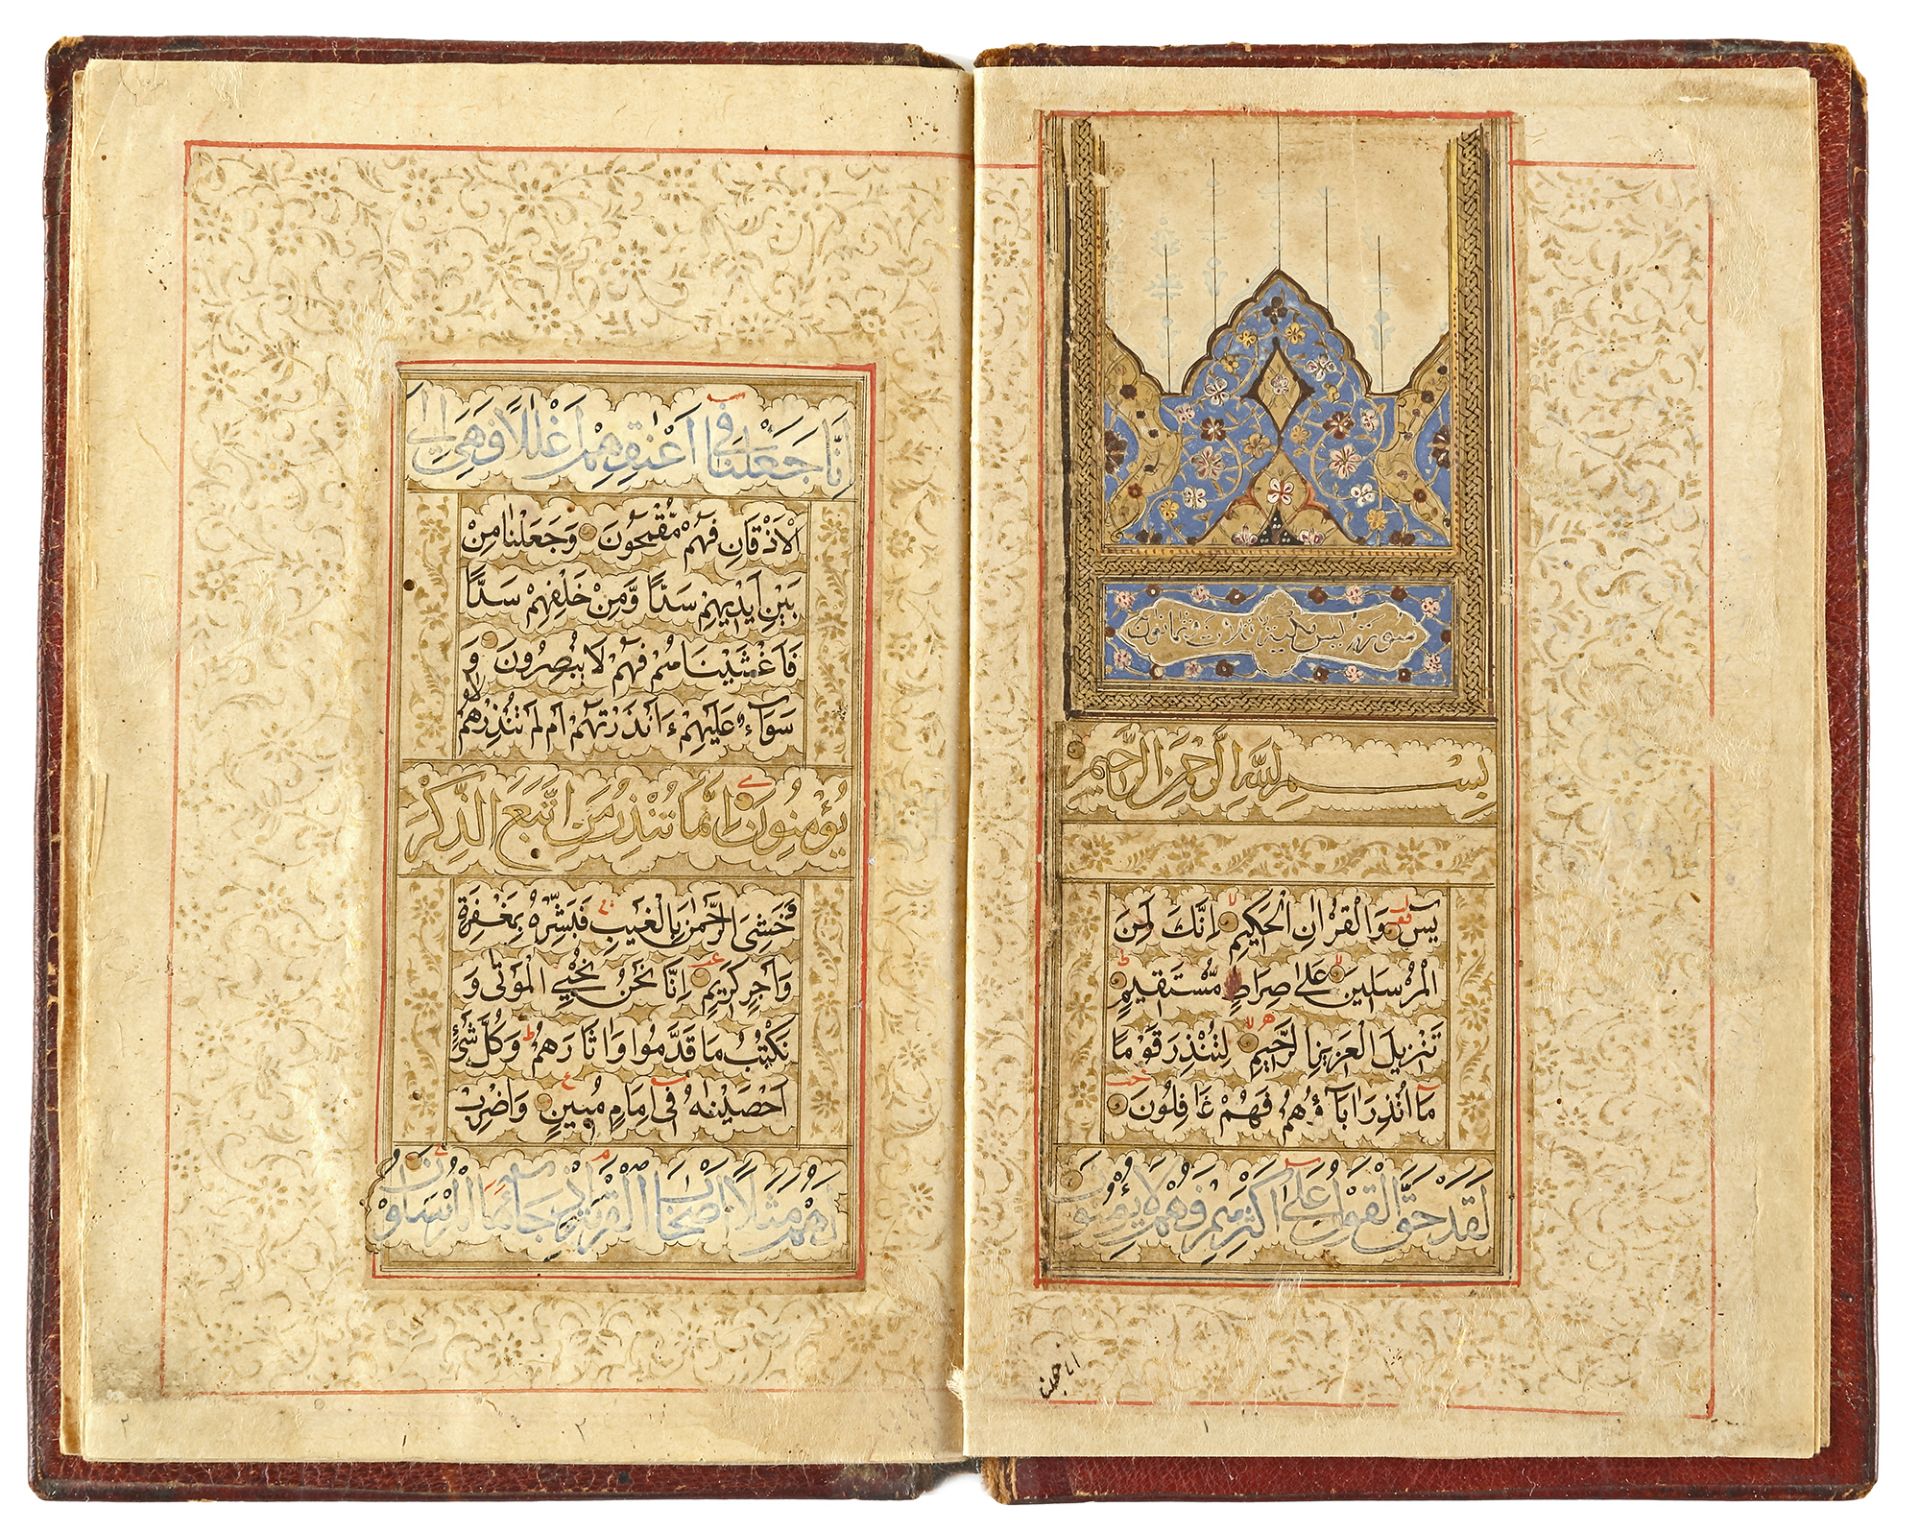 سورة يس مكية ثلاث وثمانون
بِسْمِ اللّٰهِ الرَّحْمٰنِ الرَّحِيمِ
يس وَالْقُرْاٰنِ الْحَكِيمِ اِنَّكَ لَمِنَ
الْمُرْسَلِينَ عَلٰى صِرَاطٍ مُّسْتَقِيمٍ
تَنْزِيلَ الْعَزِيزِ الرَّحِيمِ لِتُنْذِرَ قَوْمًا
مَآ اُنْذِرَ اٰبَآؤُهُمْ فَهُمْ غَافِلُونَ
لَقَدْ حَقَّ الْقَوْلُ عَلٰى اَكْثَرِهِمْ فَهُمْ لَا يُؤْمِنُونَ
اِنَّا جَعَلْنَا فِى اَعْنٰقِهِمْ اَغْلٰلًا فَهِىَ اِلَى
الْاَذْقَانِ فَهُمْ مُّقْمَحُونَ وَجَعَلْنَا مِنْ
بَيْنِ اَيْدِيهِمْ سَدًّا وَّمِنْ خَلْفِهِمْ سَدًّا
فَاَغْشَيْنَاهُمْ فَهُمْ لَا يُبْصِرُونَ وَ
سَوَآءٌ عَلَيْهِمْ ءَاَنْذَرْتَهُمْ اَمْ لَمْ تُنْذِرْهُمْ لَا
يُؤْمِنُونَ اِنَّمَا تُنْذِرُ مَنِ اتَّبَعَ الذِّكْرَ
وَخَشِىَ الرَّحْمٰنَ بِالْغَيْبِ فَبَشِّرْهُ بِمَغْفِرَةٍ
وَاَجْرٍ كَرِيمٍ اِنَّا نَحْنُ نُحْيِى الْمَوْتٰى وَ
نَكْتُبُ مَا قَدَّمُوا وَاٰثَارَهُمْ وَكُلَّ شَىْءٍ
اَحْصَيْنٰهُ فِى اِمَامٍ مُبِينٍ وَاضْرِبْ
لَهُمْ مَثَلًا اَصْحَابَ الْقَرْيَةِ اِذْ جَآءَهَا الْمُرْسَلُونَ
٢
٢
١